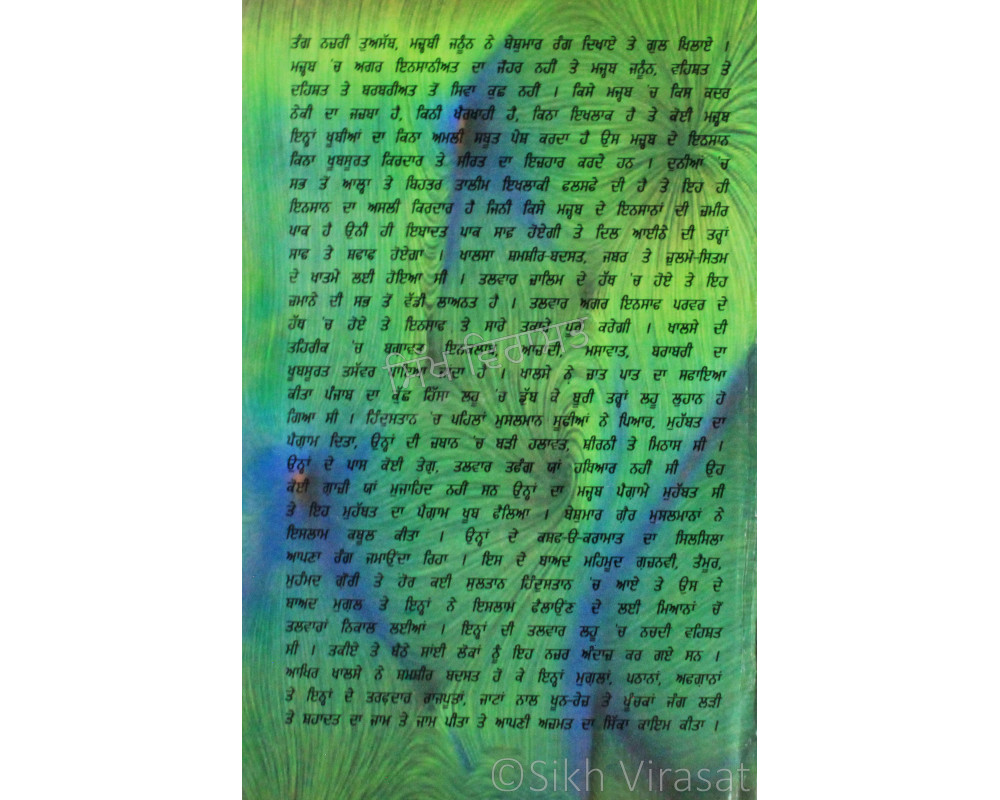 ਤੰਗ ਨਜ਼ਰੀ ਤੁਅਸੱਬ, ਮਜ਼੍ਹਬੀ ਜਨੂੰਨ ਨੇ ਬੇਸ਼ੁਮਾਰ ਰੰਗ ਦਿਖਾਏ ਤੇ ਗੁਲ ਖਿਲਾਏ ।
ਮਜ਼੍ਹਬ 'ਚ ਅਗਰ ਇਨਸਾਨੀਅਤ ਦਾ ਜੌਹਰ ਨਹੀਂ ਤੇ ਮਜ਼੍ਹਬ ਜਨੂੰਨ, ਵਹਿਸ਼ਤ ਤੇ
ਦਹਿਸ਼ਤ ਤੇ ਬਰਬਰੀਅਤ ਤੋਂ ਸਿਵਾ ਕੁਛ ਨਹੀਂ । ਕਿਸੇ ਮਜ਼੍ਹਬ 'ਚ ਕਿਸ ਕਦਰ
ਨੇਕੀ ਦਾ ਜਜ਼ਬਾ ਹੈ, ਕਿਨੀ ਖ਼ੈਰਖਾਹੀ ਹੈ, ਕਿਨਾ ਇਖਲਾਕ ਹੈ ਤੇ ਕੋਈ ਮਜ਼੍ਹਬ
ਇਨ੍ਹਾਂ ਖੂਬੀਆਂ ਦਾ ਕਿਨਾ ਅਮਲੀ ਸਬੂਤ ਪੇਸ਼ ਕਰਦਾ ਹੈ ਉਸ ਮਜ਼੍ਹਬ ਦੇ ਇਨਸਾਨ
ਕਿਨਾ ਖ਼ੂਬਸੂਰਤ ਕਿਰਦਾਰ ਤੇ ਸੀਰਤ ਦਾ ਇਜ਼ਹਾਰ ਕਰਦੇ ਹਨ । ਦੁਨੀਆਂ 'ਚ
ਸਭ ਤੋਂ ਆਲ੍ਹਾ ਤੇ ਬਿਹਤਰ ਤਾਲੀਮ ਇਖਲਾਕੀ ਫਲਸਫੇ ਦੀ ਹੈ ਤੇ ਇਹ ਹੀ
ਇਨਸਾਨ ਦਾ ਅਸਲੀ ਕਿਰਦਾਰ ਹੈ ਜਿਨੀ ਕਿਸੇ ਮਜ਼੍ਹਬ ਦੇ ਇਨਸਾਨਾਂ ਦੀ ਜ਼ਮੀਰ
ਪਾਕ ਹੈ ਉਨੀ ਹੀ ਇਬਾਦਤ ਪਾਕ ਸਾਫ਼ ਹੋਏਗੀ ਤੇ ਦਿਲ ਆਈਨੇ ਦੀ ਤਰ੍ਹਾਂ
ਸਾਫ ਤੇ ਸ਼ਫਾਫ ਹੋਏਗਾ । ਖਾਲਸਾ ਸ਼ਮਸ਼ੀਰ-ਬਦਸਤ, ਜਬਰ ਤੇ ਜ਼ੁਲਮੋ-ਸਿਤਮ
ਦੇ ਖਾਤਮੇ ਲਈ ਹੋਇਆ ਸੀ । ਤਲਵਾਰ ਜ਼ਾਲਿਮ ਦੇ ਹੱਥ 'ਚ ਹੋਏ ਤੇ ਇਹ
ਜ਼ਮਾਨੇ ਦੀ ਸਭ ਤੋਂ ਵੱਡੀ ਲਾਅਨਤ ਹੈ । ਤਲਵਾਰ ਅਗਰ ਇਨਸਾਫ ਪਰਵਰ ਦੇ
ਹੱਥ 'ਚ ਹੋਏ ਤੇ ਇਨਸਾਫ ਤੇ ਸਾਰੇ ਤਕਾਜ਼ੇ ਪੂਰੇ ਕਰੇਗੀ । ਖਾਲਸੇ ਦੀ
ਤਹਿਰੀਕ 'ਚ ਬਗ਼ਾਵਤ, ਇਨਕਲਾਬ, ਆਜ਼ਾਦੀ, ਮਸਾਵਾਤ, ਬਰਾਬਰੀ ਦਾ
ਖੂਬਸੂਰਤ ਤਸੱਵਰ ਪਾਇਆ ਜਾਂਦਾ ਹੈ । ਖਾਲਸੇ ਨੇ ਜ਼ਾਤ ਪਾਤ ਦਾ ਸਫਾਇਆ
ਕੀਤਾ ਪੰਜਾਬ ਦਾ ਕੁੱਛ ਹਿੱਸਾ ਲਹੂ 'ਚ ਡੁੱਬ ਕੇ ਬੁਰੀ ਤਰ੍ਹਾਂ ਲਹੂ ਲੁਹਾਨ ਹੋ
ਗਿਆ ਸੀ । ਹਿੰਦੁਸਤਾਨ 'ਚ ਪਹਿਲਾਂ ਮੁਸਲਮਾਨ ਸੂਫੀਆਂ ਨੇ ਪਿਆਰ, ਮੁਹੱਬਤ ਦਾ
ਪੈਗ਼ਾਮ ਦਿਤਾ, ਉਨ੍ਹਾਂ ਦੀ ਜ਼ਬਾਨ 'ਚ ਬੜੀ ਹਲਾਵਤ, ਸ਼ੀਰਨੀ ਤੇ ਮਿਠਾਸ ਸੀ ।
ਉਨ੍ਹਾਂ ਦੇ ਪਾਸ ਕੋਈ ਤੇਗ਼, ਤਲਵਾਰ ਤਫੰਗ ਯਾਂ ਹਥਿਆਰ ਨਹੀਂ ਸੀ ਉਹ
ਕੋਈ ਗ਼ਾਜ਼ੀ ਯਾਂ ਮੁਜਾਹਿਦ ਨਹੀਂ ਸਨ ਉਨ੍ਹਾਂ ਦਾ ਮਜ਼੍ਹਬ ਪੈਗ਼ਾਮੇ ਮੁਹੱਬਤ ਸੀ
ਤੇ ਇਹ ਮੁਹੱਬਤ ਦਾ ਪੈਗ਼ਾਮ ਖੂਬ ਫੈਲਿਆ । ਬੇਸ਼ੁਮਾਰ ਗ਼ੈਰ ਮੁਸਲਮਾਨਾਂ ਨੇ
ਇਸਲਾਮ ਕਬੂਲ ਕੀਤਾ । ਉਨ੍ਹਾਂ ਦੇ ਕਸ਼ਫ-ਓ-ਕਰਾਮਾਤ ਦਾ ਸਿਲਸਿਲਾ
ਆਪਣਾ ਰੰਗ ਜਮਾਉਂਦਾ ਰਿਹਾ । ਇਸ ਦੇ ਬਾਅਦ ਮਹਿਮੂਦ ਗਜ਼ਨਵੀ, ਤੈਮੂਰ,
ਮੁਹੰਮਦ ਗ਼ੌਰੀ ਤੇ ਹੋਰ ਕਈ ਸੁਲਤਾਨ ਹਿੰਦੁਸਤਾਨ 'ਚ ਆਏ ਤੇ ਉਸ ਦੇ
ਬਾਅਦ ਮੁਗਲ ਤੇ ਇਨ੍ਹਾਂ ਨੇ ਇਸਲਾਮ ਫੈਲਾਉਂਣ ਦੇ ਲਈ ਮਿਆਨਾਂ ਚੋਂ
ਤਲਵਾਰਾਂ ਨਿਕਾਲ ਲਈਆਂ । ਇਨ੍ਹਾਂ ਦੀ ਤਲਵਾਰ ਲਹੂ 'ਚ ਨਚਦੀ ਵਹਿਸ਼ਤ
ਸੀ । ਤਕੀਏ ਤੇ ਬੈਠੇ ਸਾਂਈ ਲੋਕਾਂ ਨੂੰ ਇਹ ਨਜ਼ਰ ਅੰਦਾਜ਼ ਕਰ ਗਏ ਸਨ ।
ਆਖਿਰ ਖਾਲਸੇ ਨੇ ਸ਼ਮਸ਼ੀਰ ਬਦਸਤ ਹੋ ਕੇ ਇਨ੍ਹਾਂ ਮੁਗ਼ਲਾਂ, ਪਠਾਨਾਂ, ਅਫਗਾਨਾਂ
ਤੇ ਇਨ੍ਹਾਂ ਦੇ ਤਰਫ਼ਦਾਰ ਰਾਜਪੂਤਾਂ, ਜਾਟਾਂ ਨਾਲ ਖੂਨ-ਰੇਜ਼ ਤੇ ਪੂੰਚਕਾਂ ਜੰਗ ਲੜੀ
ਤੇ ਸ਼ਹਾਦਤ ਦਾ ਜਾਮ ਤੇ ਜਾਮ ਪੀਤਾ ਤੇ ਆਪਣੀ ਅਜ਼ਮਤ ਦਾ ਸਿੱਕਾ ਕਾਇਮ ਕੀਤਾ ।
ਸਿੱਖ ਵਿਰਾਸਤ
©Sikh Virasat